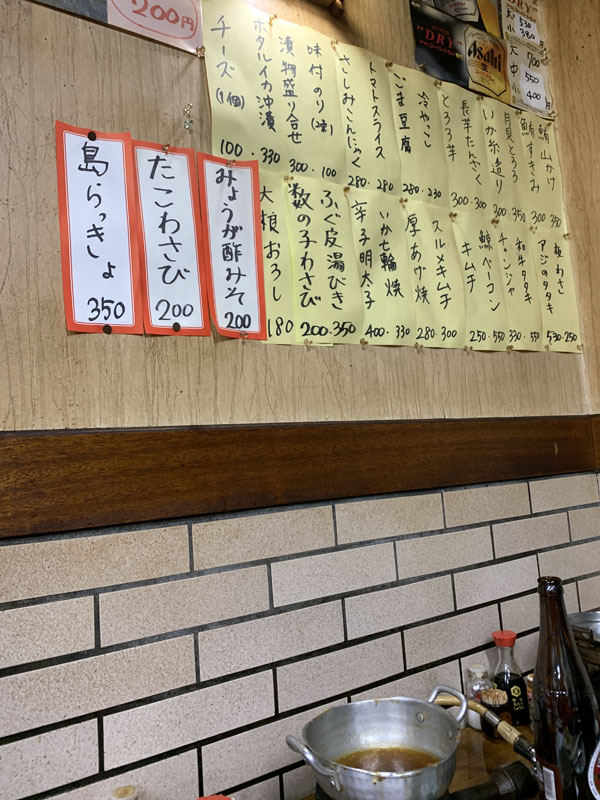 DRY
Asahi
生
530
380
大 700
中 550
小 400
鮪山かけ 350
鮪すきみ 300
月見とろろ 350
いか糸造り 300
長芋たんざく 300
とろろ芋 300
冷やっこ 230
ごま豆腐 280
トマトスライス 280
さしみこんにゃく 280
味付のり 100
漬物盛り合せ 300
ホタルイカ沖漬 330
チーズ(1個) 100
板わさ 250
アジのタタキ 530
和牛タタキ 550
チャンジャ 330
鯨ベーコン 550
キムチ 250
スルメキムチ 300
厚あげ焼 280
いか七輪焼 330
辛子明太子 400
ふぐ皮湯びき 350
数の子わさび 200
大根おろし 180
みょうが酢みそ 200
たこわさび 200
島らっきょ 350
200円